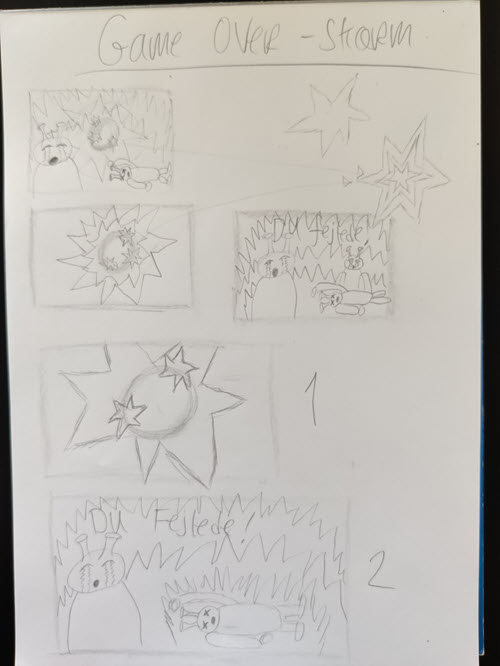 Game Over - Skærm
Du fejlede!
1
Du Fejlede!
2